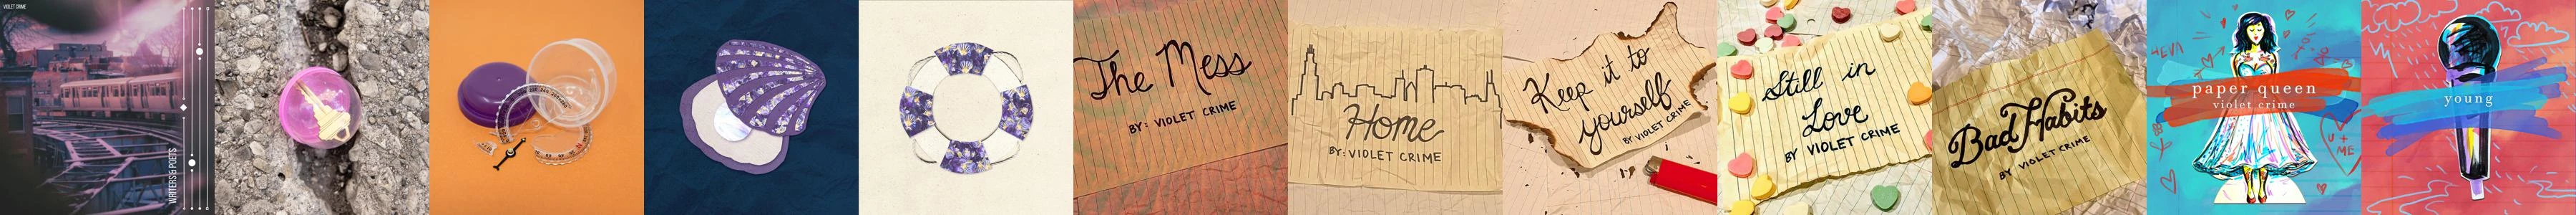 VIOLET CRIME
WRITERS & POETS
The Mess
BY: VIOLET CRIME
Home
BY: VIOLET CRIME
Keep it to
yourself
BY VIOLET CRIME
Still in
Love
BY VIOLET CRIME
Bad Habits
BY VIOLET CRIME
paper queen
violet crime
U +
ME
young